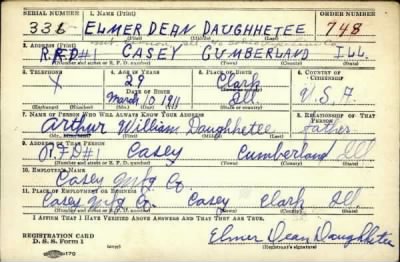 SERIAL NUMBER 1. NAME (Print) ORDER NUMBER
336 ELMER DEAN DAUGHHETEE 748
(First) (Middle) (Last)
2. ADDRESS (Print)
R.F.D#1 CASEY CUMBERLAND ILL.
(Number and street or R. F. D. number) (Town) (County) (State)
3. TELEPHONE 4. AGE IN YEARS 5. PLACE OF BIRTH 6. COUNTRY OF CITIZENSHIP
X 29 Clark
DATE OF BIRTH
March 10 1911 Ill U.S.A.
(Exchange) (Number) (Mo.) (Day) (Yr.) (State or country)
7. NAME OF PERSON WHO WILL ALWAYS KNOW YOUR ADDRESS 8. RELATIONSHIP OF THAT PERSON
Arthur William Daughhetee Father
(Mr., Mrs., Miss) (First) (Middle) (Last)
9. ADDRESS OF THAT PERSON
R.F.D#1 Casey Cumberland Ill
(Number and street or R. F. D. number) (Town) (County) (State)
10. EMPLOYER'S NAME
Casey Mfg Co.
11. PLACE OF EMPLOYMENT OR BUSINESS
Casey Mfg Co. Casey Clark Ill.
(Number and street or R. F. D. number) (Town) (County) (State)
I AFFIRM THAT I HAVE VERIFIED ABOVE ANSWERS AND THAT THEY ARE TRUE.
REGISTRATION CARD
D. S. S. Form 1 Elmer Dean Daughhetee
(Registrant's signature)